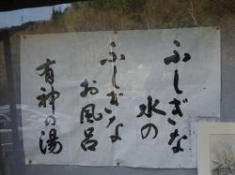 ふしぎな
水の
ふしぎな
お風呂
有神の湯